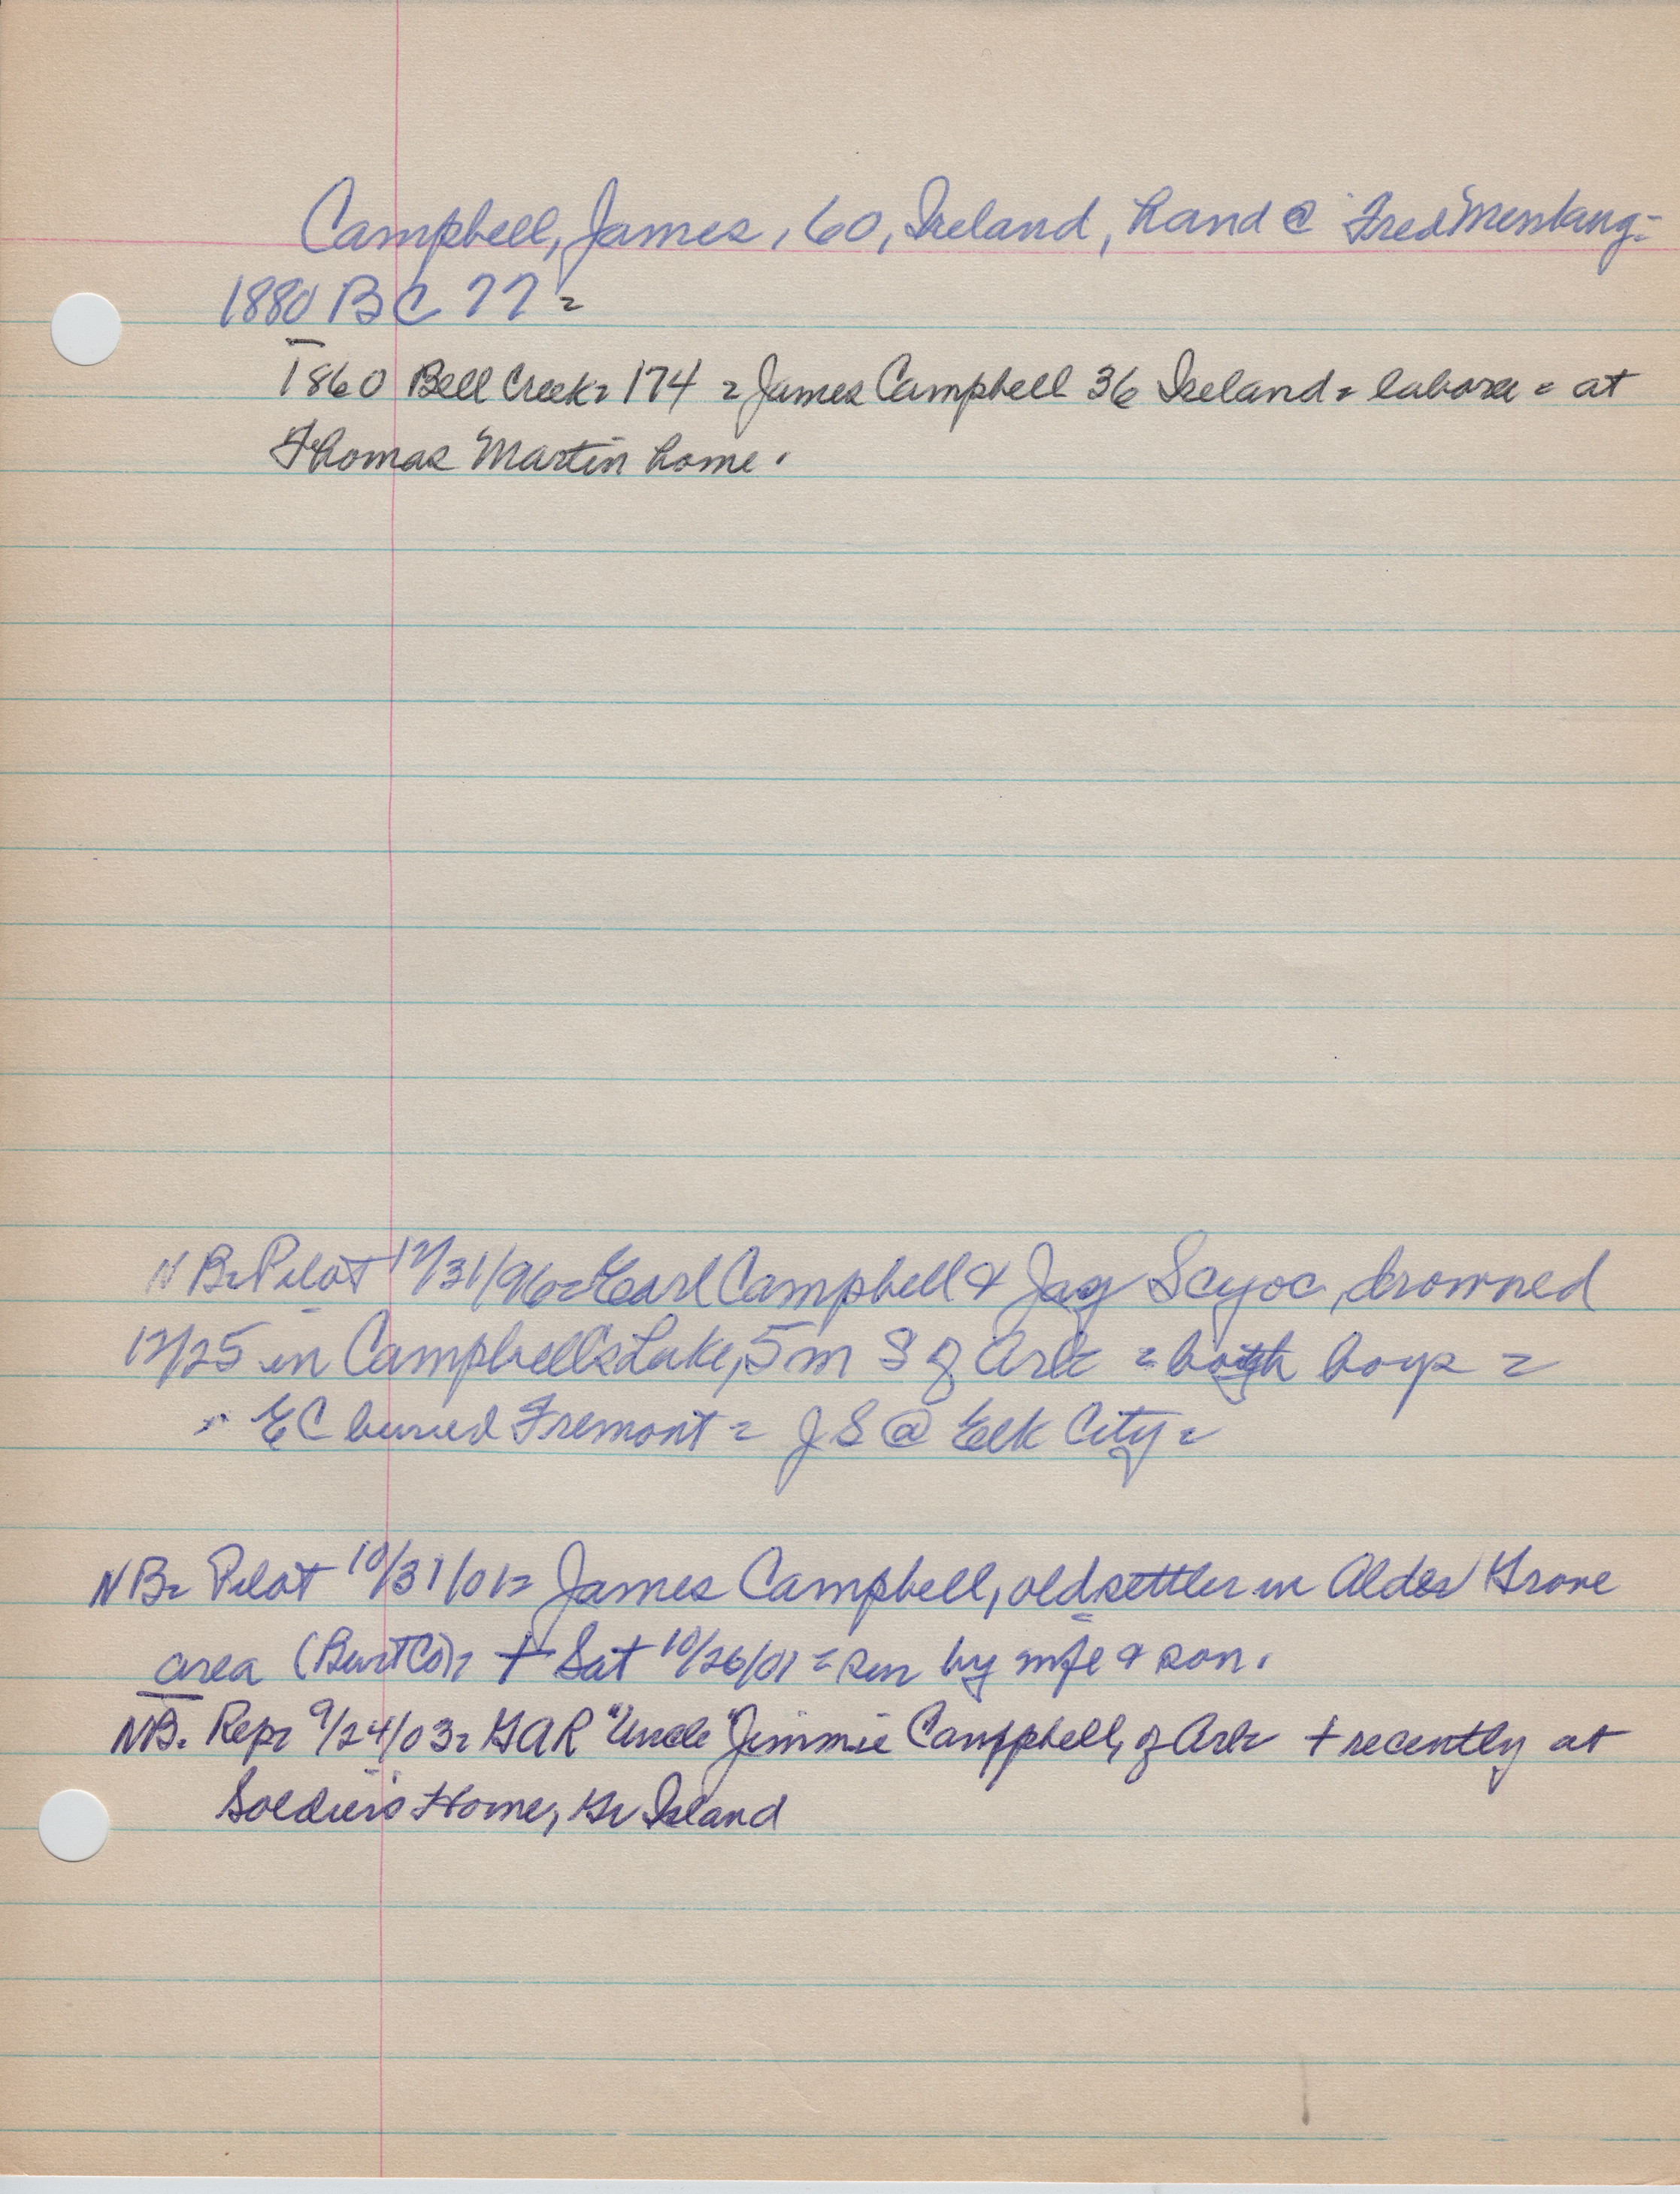 Campbell, James, 60, Ireland, hand @ Fred
1880 BC 77 =
1860 Bell Creek = 174 = James Campbell 36 Ireland = laborer = at
Thomas Martin home.
NB = Pilot 12/31/96 = Earl Campbell & Jay Scyoc drowned
12/25 in Campbells Lake, 5 m S of Ark = both boys =
EC buried Fremont = JS @ Elk City =
NB = Pilot 10/31/01 = James Campbell, old settler in Alder Grove
area (Burt Co) = † Sat 10/26/01 = sur by wife & son.
NB. Rep = 9/24/03 = GAR "Uncle" Jimmie Campbell, of Ark † recently at
Soldiers Home, Gr Island